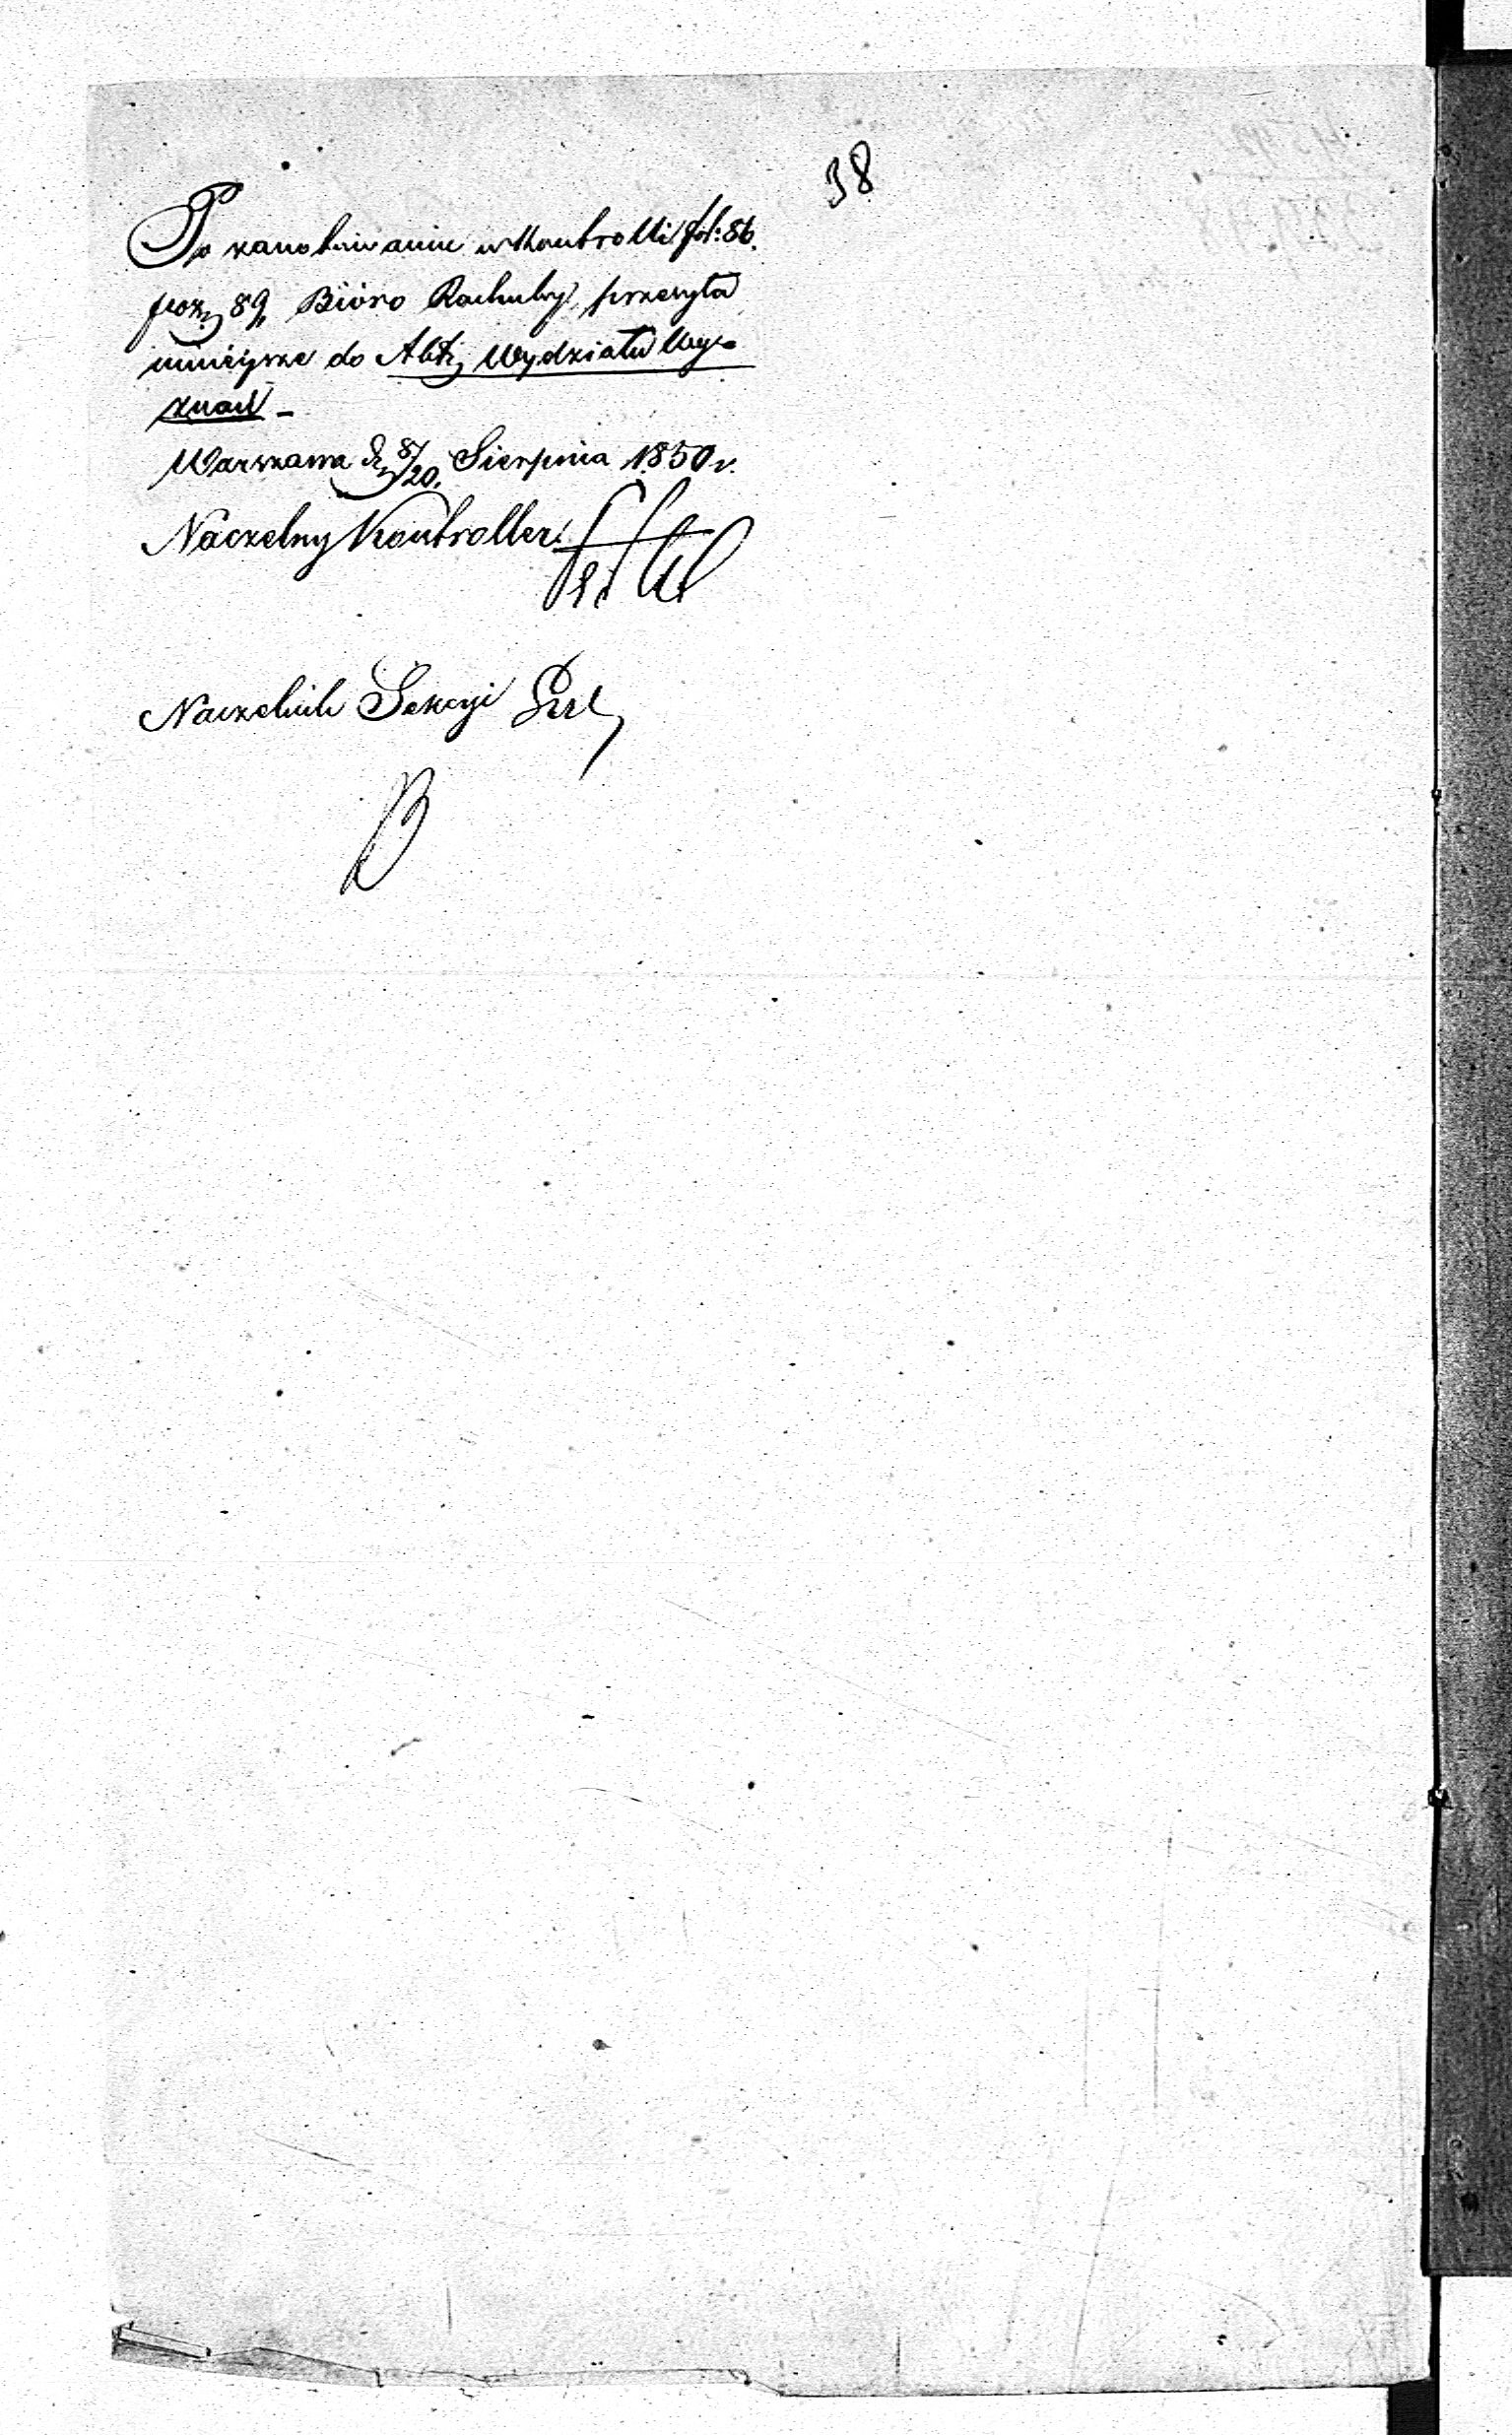 38
Po zanotowaniu w Kontrolli fol: 86.
poz. 89, Bióro Rachuby, przesyła
niniejsze do Akt, Wydziału Wy-
znań –
Warszawa d. 8/20. Sierpnia 1850 r.
Naczelny Kontroller
Naczelnik Sekcyi